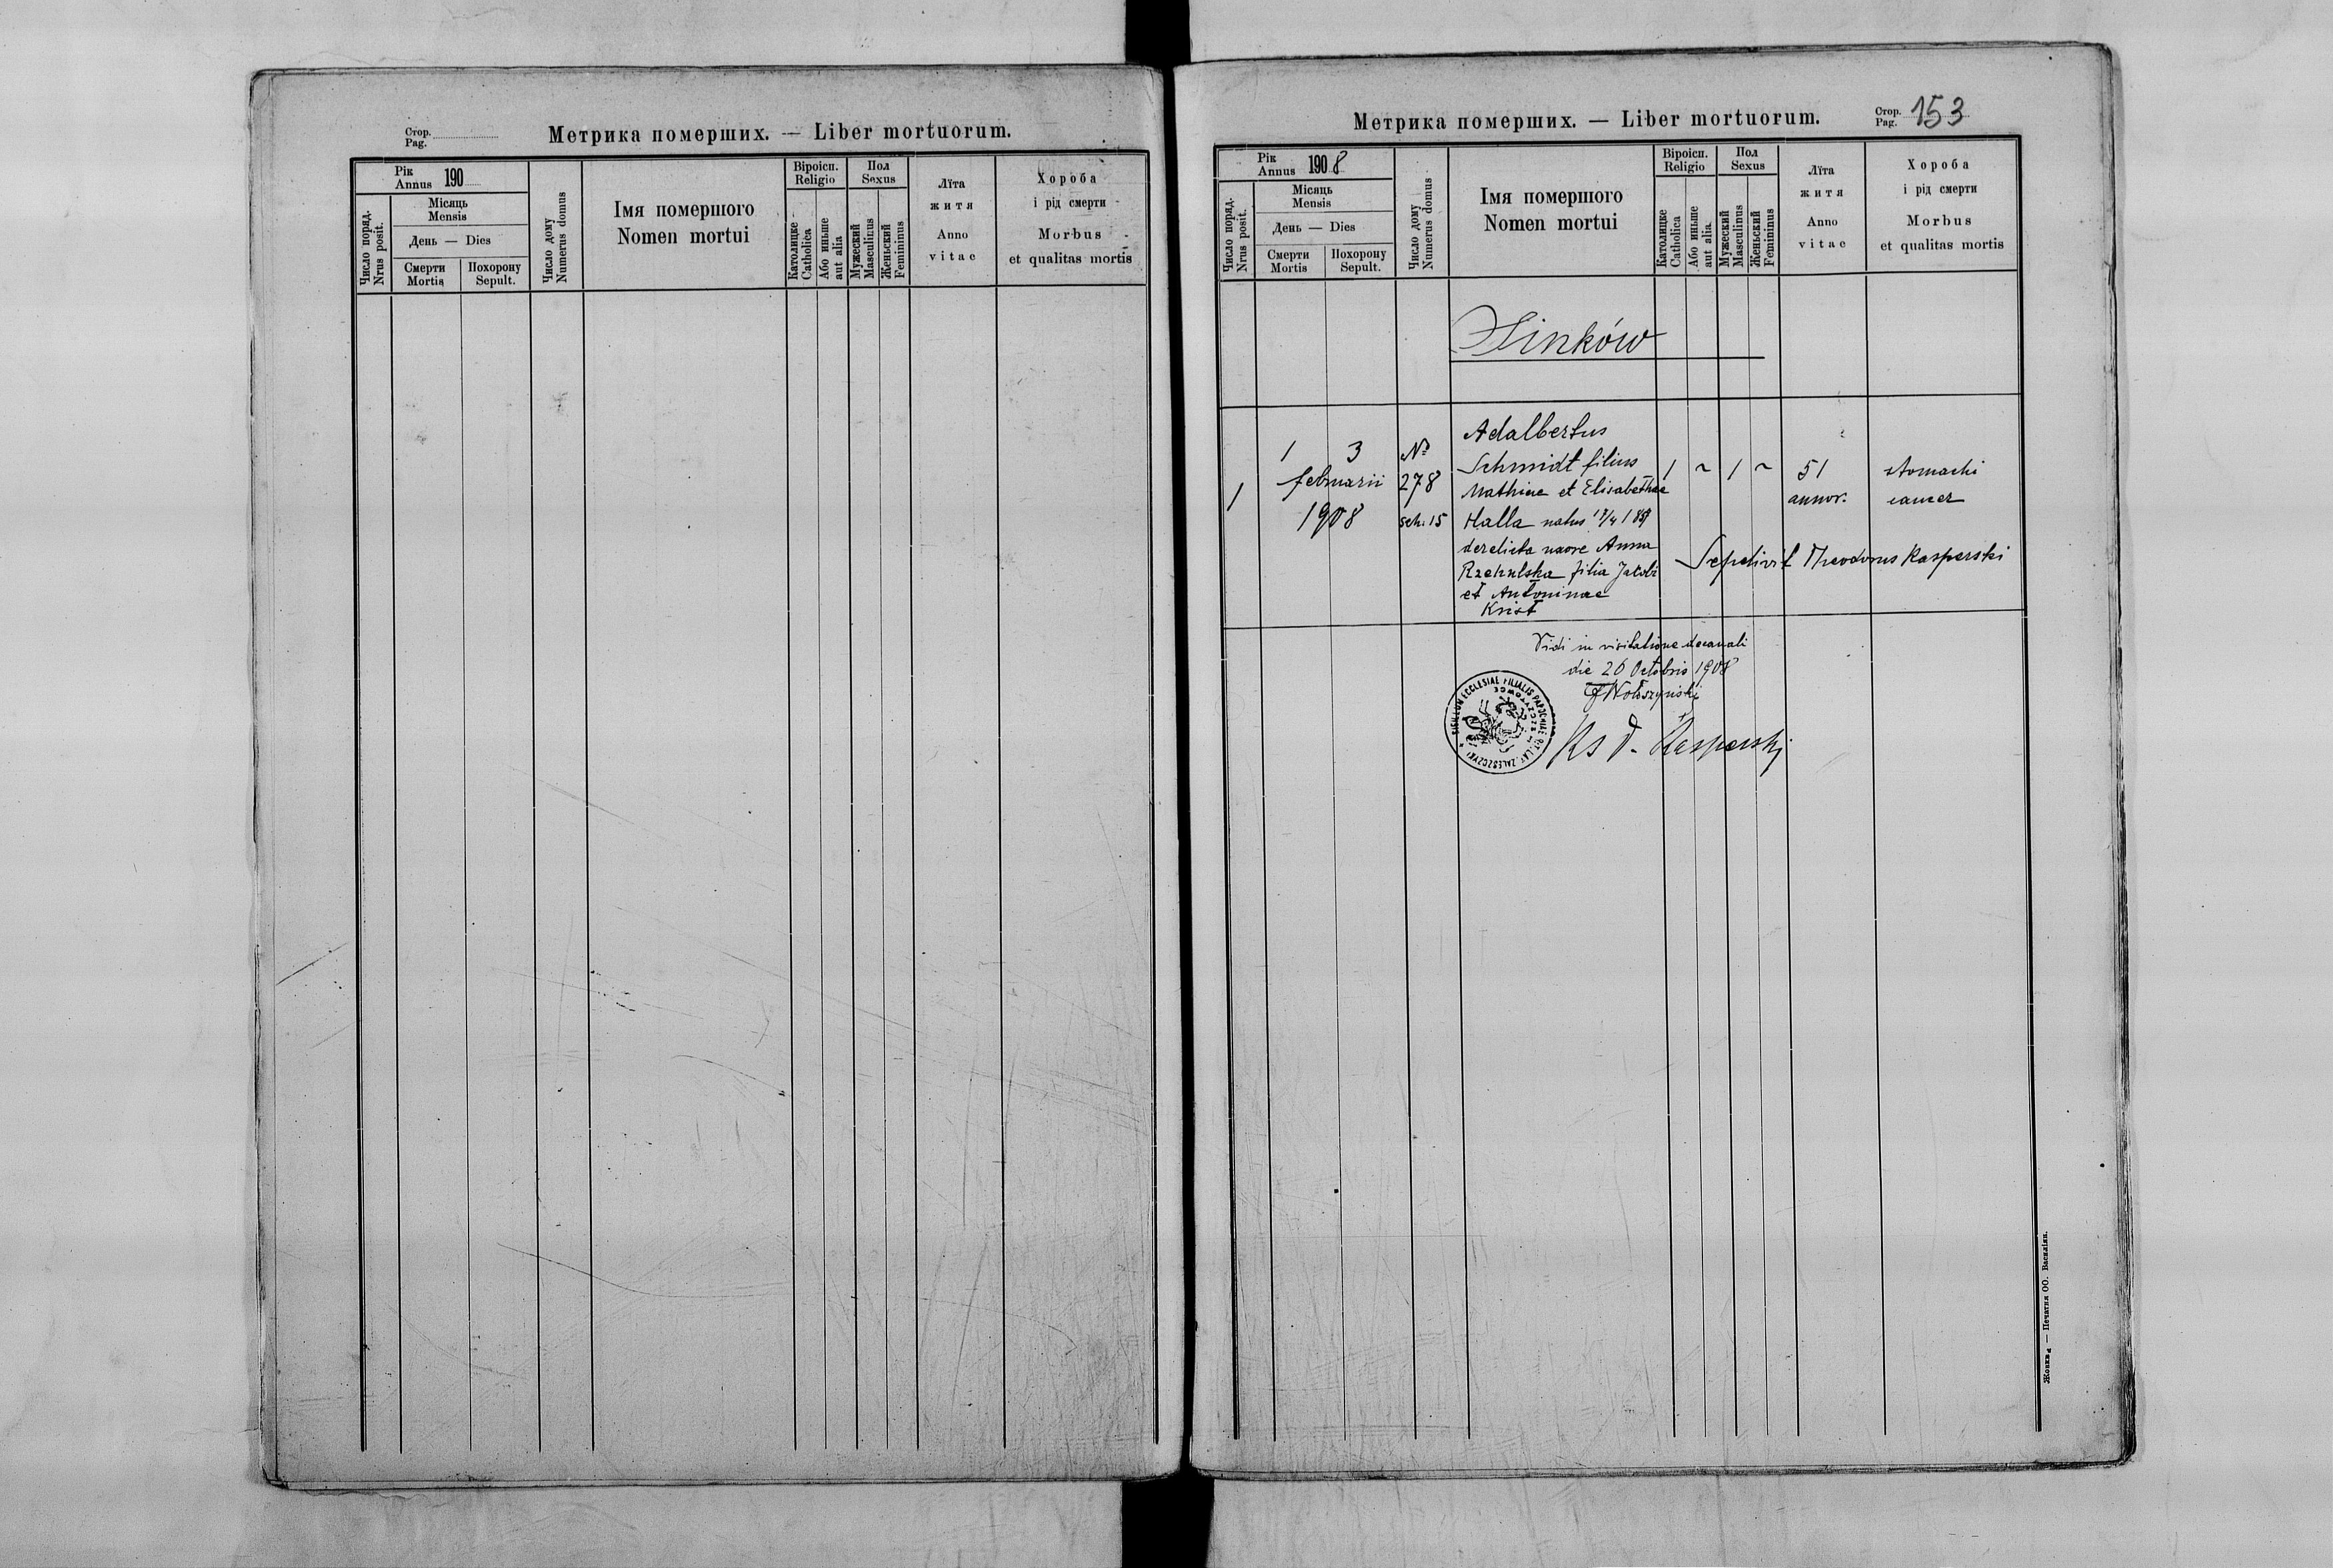 Стор.
Pag.
Метрика померших. — Liber mortuorum.
Рік
Annus 190
Число поряд.
Nrus posit.
Місяць
Mensis
День — Dies
Смерти
Mortis
Похорону
Sepult.
Число дому
Numerus domus
Імя помершого
Nomen mortui
Віроісп.
Religio
Католицке
Catholica
Або иньше
aut alia
Пол
Sexus
Мужеский
Masculinus
Женьский
Femininus
Лїта
житя
Anno
vitae
Хороба
і рід смерти
Morbus
et qualitas mortis
Метрика померших. — Liber mortuorum.
Стор.
Pag. 153
Рік
Annus 1908
Число поряд.
Nrus posit.
Місяць
Mensis
День — Dies
Смерти
Mortis
Похорону
Sepult.
Число дому
Numerus domus
Імя помершого
Nomen mortui
Віроісп.
Religio
Католицке
Catholica
Або иньше
aut alia.
Пол
Sexus
Мужеский
Masculinus
Женьский
Femininus
Лїта
житя
Anno
vitae
Хороба
і рід смерти
Morbus
et qualitas mortis
Sinków
1
1 3
februarii
1908
№
278
sch. 15
Adalbertus
Schmidt filius
Mathiae et Elisabethae
Halla natus 17/4 1857
derelicta uxore Anna
Rzehulska filia Jacobi
et Antoninae
Krist
1 ~ 1 ~
51
annor.
stomachi
cancer
Sepelivit Theodorus Kasperski
Vidi in visitatione decanali
die 26 Octobris 1908
Wołoszyński
Ks T. Kasperski
SIGILLUM ECCLESIAE FILIALIS PAROCHIAE RIT. LAT. ZALESZCZYKI
W SZCZYTOWCE
Жовква — Печатня ОО. Василіян.